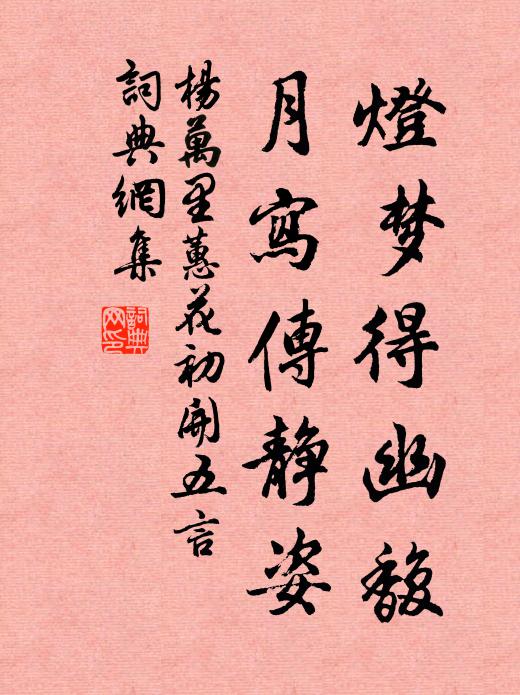 燈梦得幽馥
月寫傳静姿
楊萬里蕙花初開五言
詞典網集
詞典网印